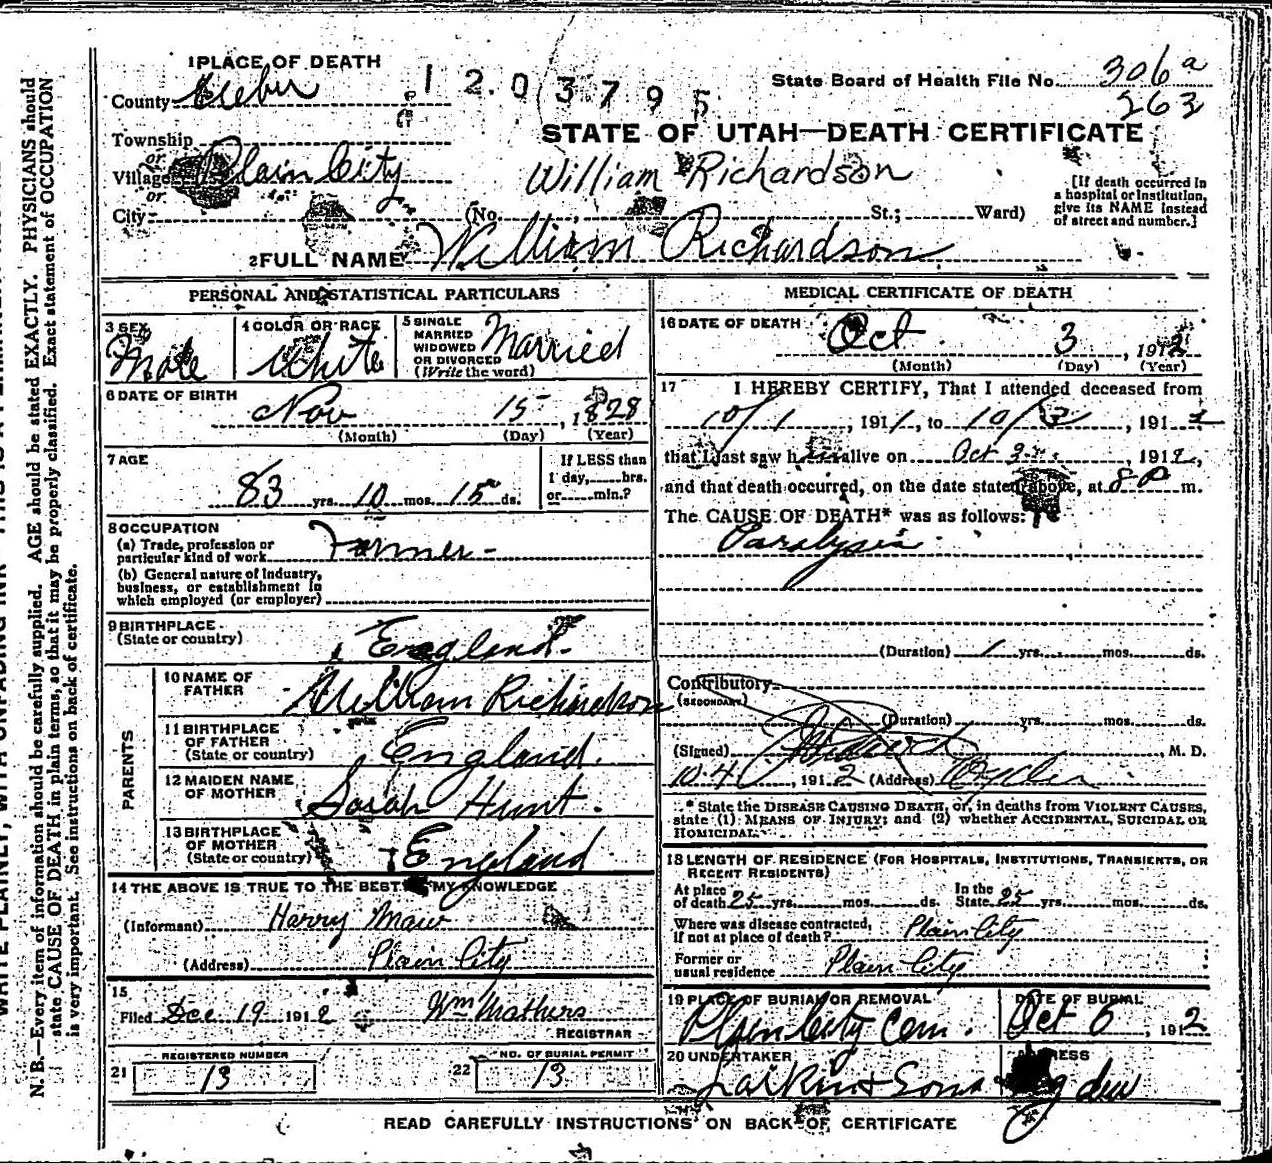 1 PLACE OF DEATH
County Weber
1203795
State Board of Health File No. 306 a
263
Township
or
Village Plain City
or
City
STATE OF UTAH—DEATH CERTIFICATE
William Richardson
(No. , St.; Ward)
[If death occurred in
a hospital or institution,
give its NAME instead
of street and number.]
2 FULL NAME William Richardson
PERSONAL AND STATISTICAL PARTICULARS
3 SEX
Male
4 COLOR OR RACE
White
5 SINGLE
MARRIED
WIDOWED
OR DIVORCED
(Write the word)
Married
6 DATE OF BIRTH
Nov 15, 1828
(Month) (Day) (Year)
7 AGE
83 yrs. 10 mos. 15 ds.
If LESS than
1 day, hrs.
or min.?
8 OCCUPATION
(a) Trade, profession or
particular kind of work Farmer
(b) General nature of Industry,
business, or establishment in
which employed (or employer)
9 BIRTHPLACE
(State or country)
England
PARENTS
10 NAME OF
FATHER
William Richardson
11 BIRTHPLACE
OF FATHER
(State or country)
England.
12 MAIDEN NAME
OF MOTHER
Sarah Hunt.
13 BIRTHPLACE
OF MOTHER
(State or country)
England
14 THE ABOVE IS TRUE TO THE BEST OF MY KNOWLEDGE
(Informant) Harry Maw
(Address) Plain City
15
Filed Dec 19 1912 Wm Mathers
REGISTRAR
REGISTERED NUMBER
21 13
NO. OF BURIAL PERMIT
22 13
MEDICAL CERTIFICATE OF DEATH
16 DATE OF DEATH
Oct 3, 1912
(Month) (Day) (Year)
17 I HEREBY CERTIFY, That I attended deceased from
10/1, 1911, to 10/3, 191
that I last saw him alive on Oct 3, 1912,
and that death occurred, on the date stated above, at 8 P m.
The CAUSE OF DEATH* was as follows:
Paralysis
(Duration) 1 yrs. mos. ds.
Contributory
(SECONDARY)
(Duration) yrs. mos. ds.
(Signed) M. D.
10-4, 1912 (Address)
* State the DISEASE CAUSING DEATH, or, in deaths from VIOLENT CAUSES,
state (1) MEANS OF INJURY; and (2) whether ACCIDENTAL, SUICIDAL OR
HOMICIDAL.
18 LENGTH OF RESIDENCE (FOR HOSPITALS, INSTITUTIONS, TRANSIENTS, OR
RECENT RESIDENTS)
At place
of death 25 yrs. mos. ds.
In the
State 25 yrs. mos. ds.
Where was disease contracted,
if not at place of death? Plain City
Former or
usual residence Plain City
19 PLACE OF BURIAL OR REMOVAL
Plain City Cem.
DATE OF BURIAL
Oct 6, 1912
20 UNDERTAKER
Larkin & Sons
ADDRESS
Ogden
READ CAREFULLY INSTRUCTIONS ON BACK OF CERTIFICATE
N. B.—Every item of information should be carefully supplied. AGE should be stated EXACTLY. PHYSICIANS should
state CAUSE OF DEATH in plain terms, so that it may be properly classified. Exact statement of OCCUPATION
is very important. See instructions on back of certificate.